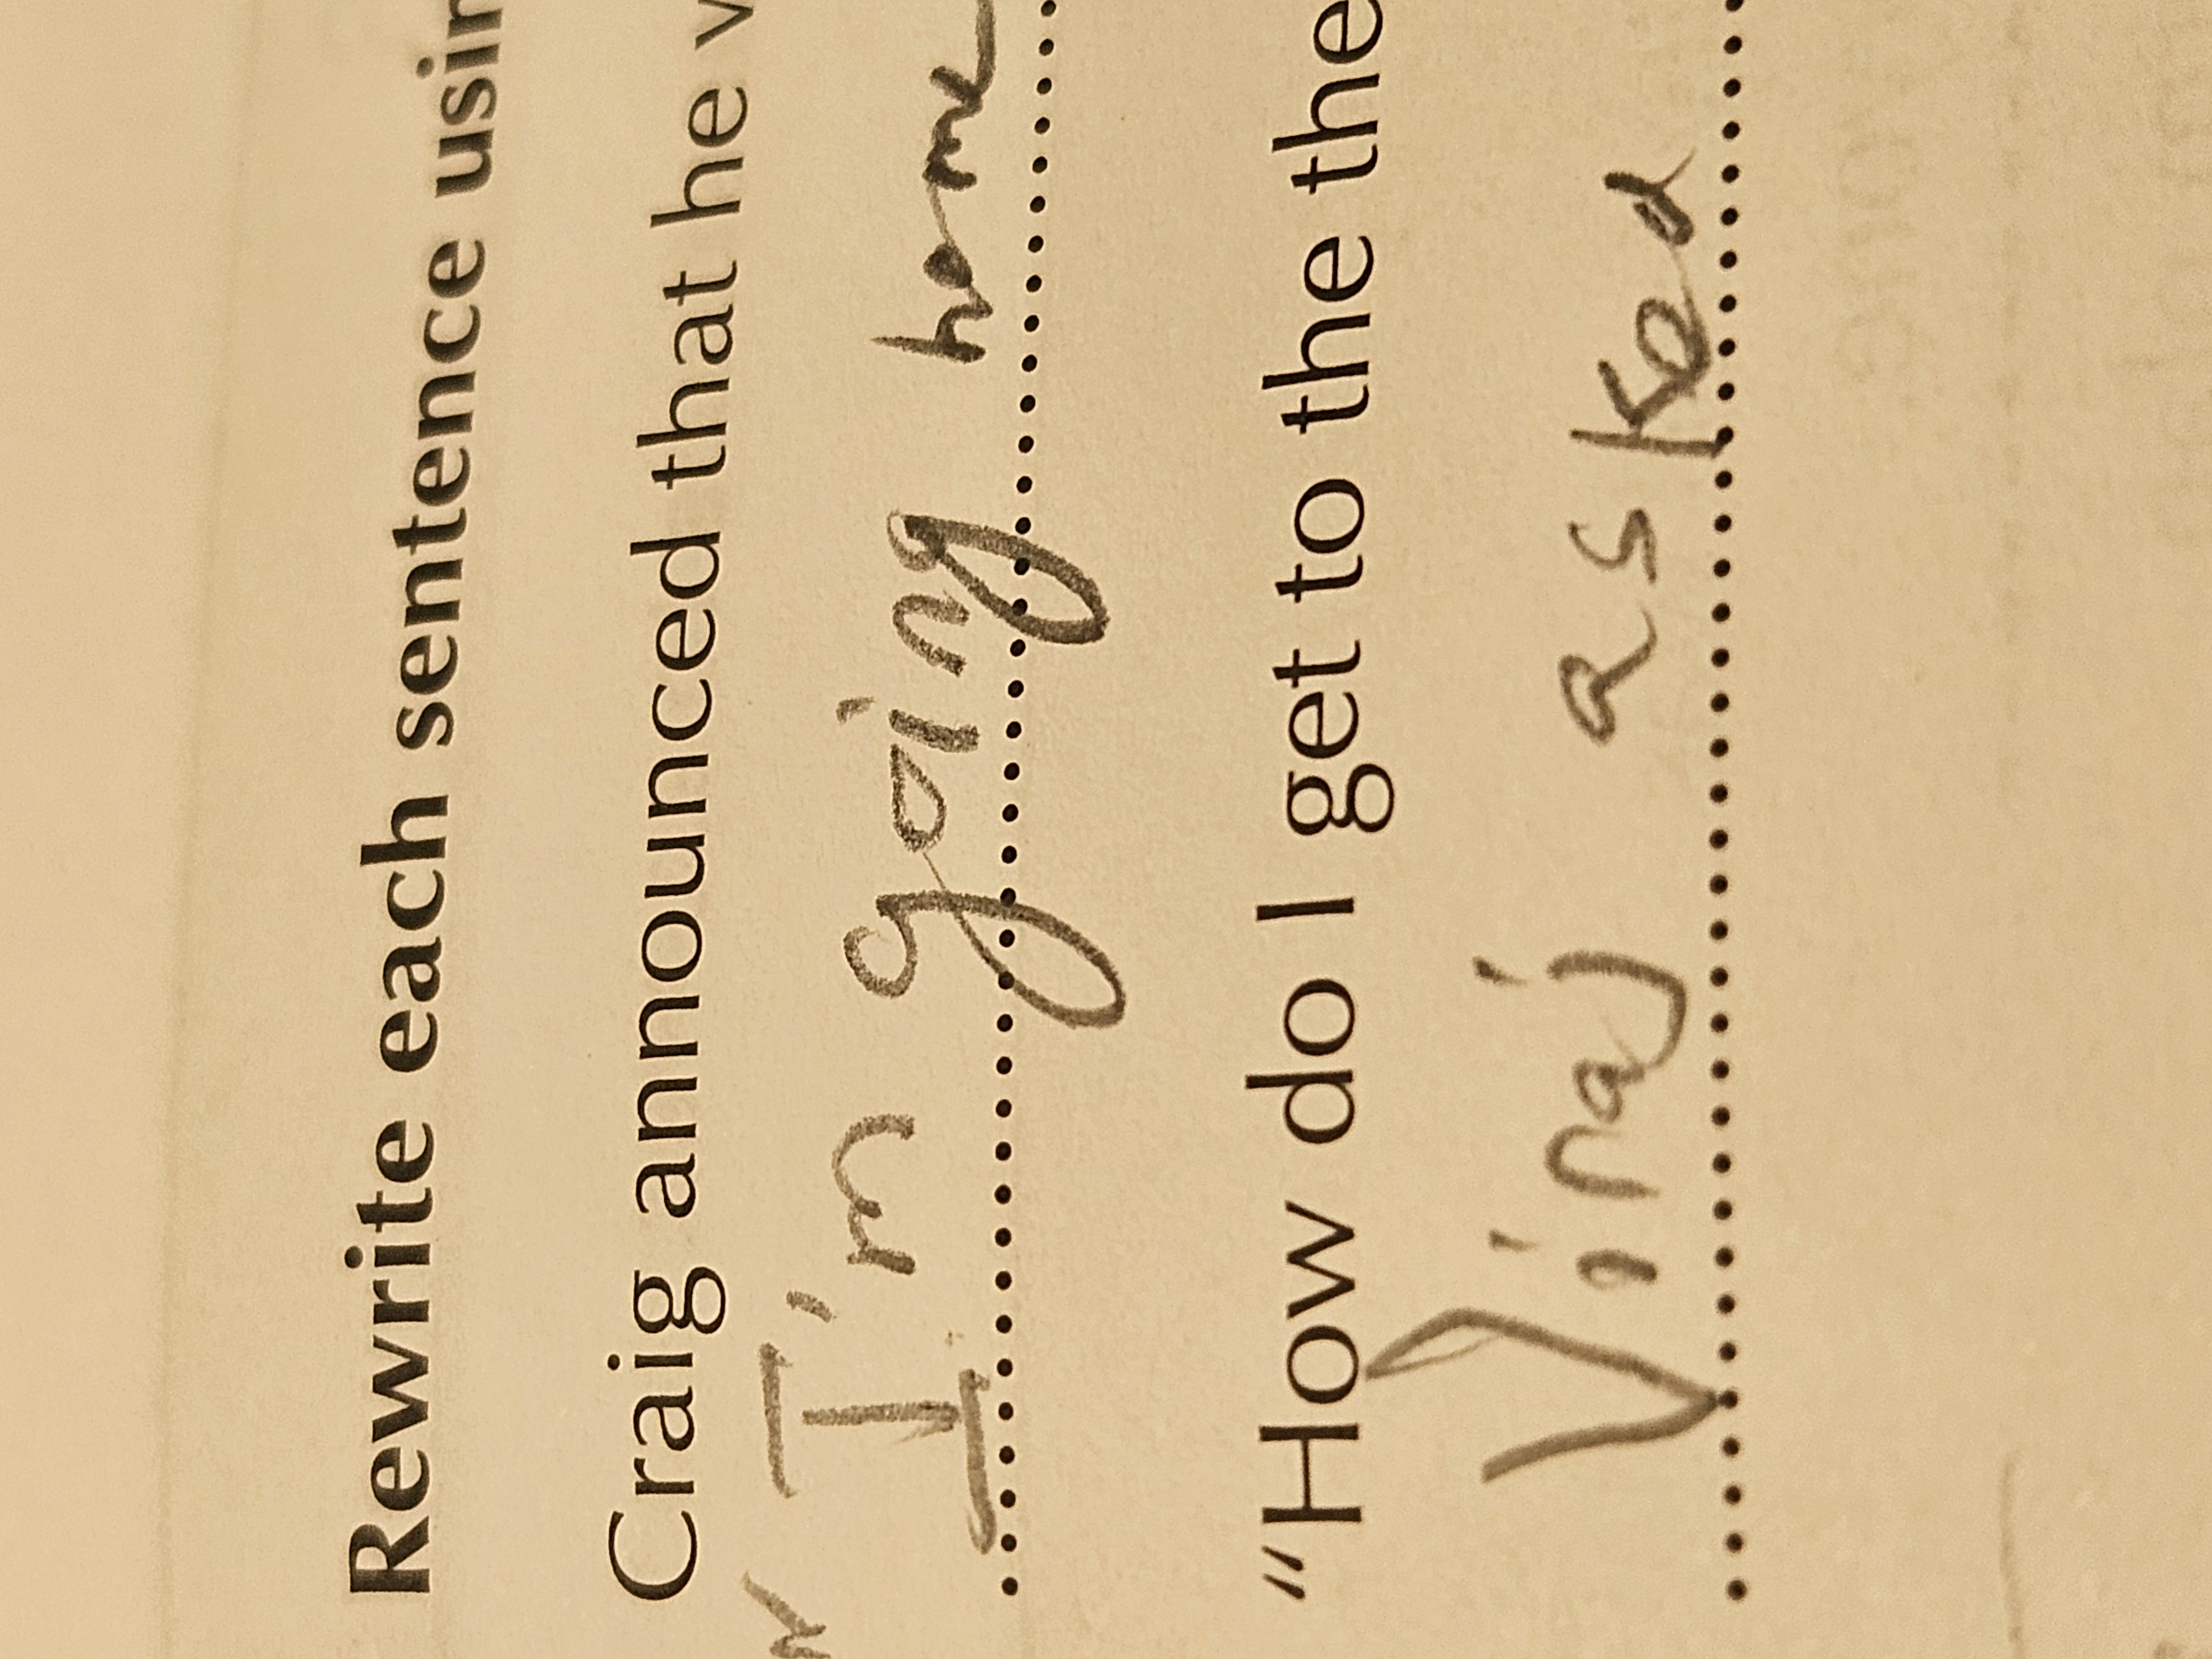 Rewrite each sentence usin
Craig announced that he w
" I'm going home
"How do I get to the the
Viraj asked